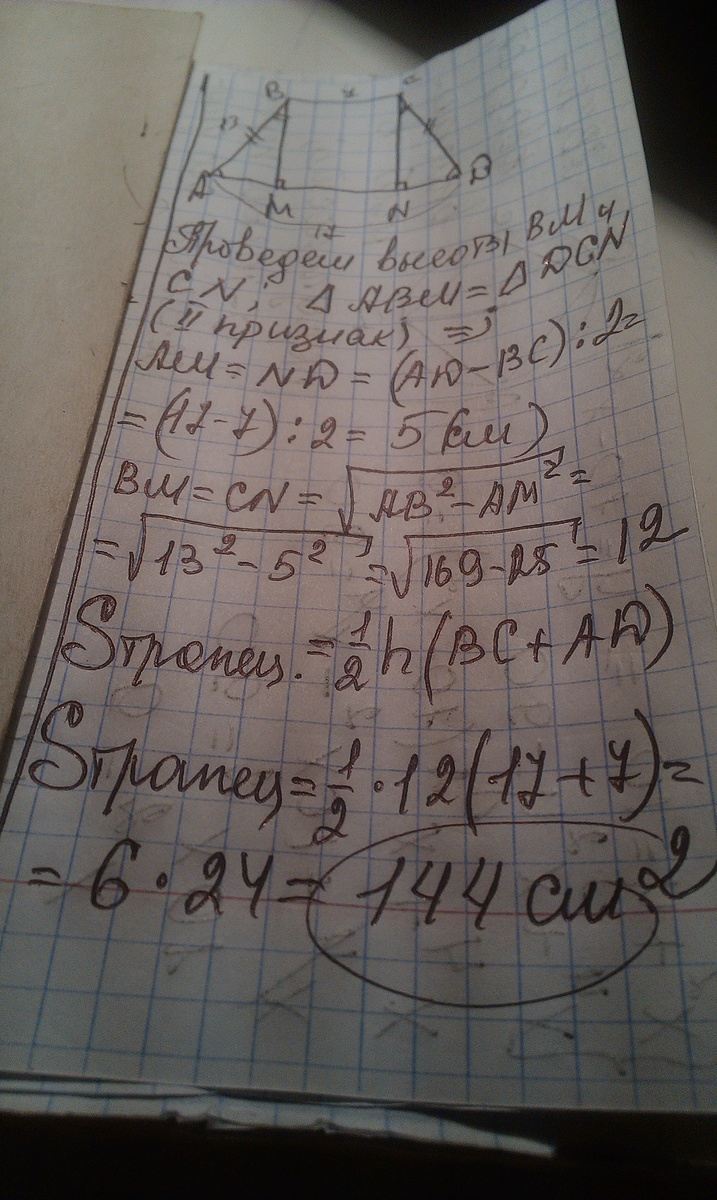 B 7 C
13
A M N D
17
Проведем высоты BM и
CN; △ABM=△DCN
(II признак) =>
AM=ND=(AD-BC):2=
=(17-7):2=5(см)
BM=CN=√AB²-AM²=
=√13²-5²=√169-25=12
Sтрапец.=1/2h(BC+AD)
Sтрапец=1/2·12(17+7)=
=6·24=144 см²